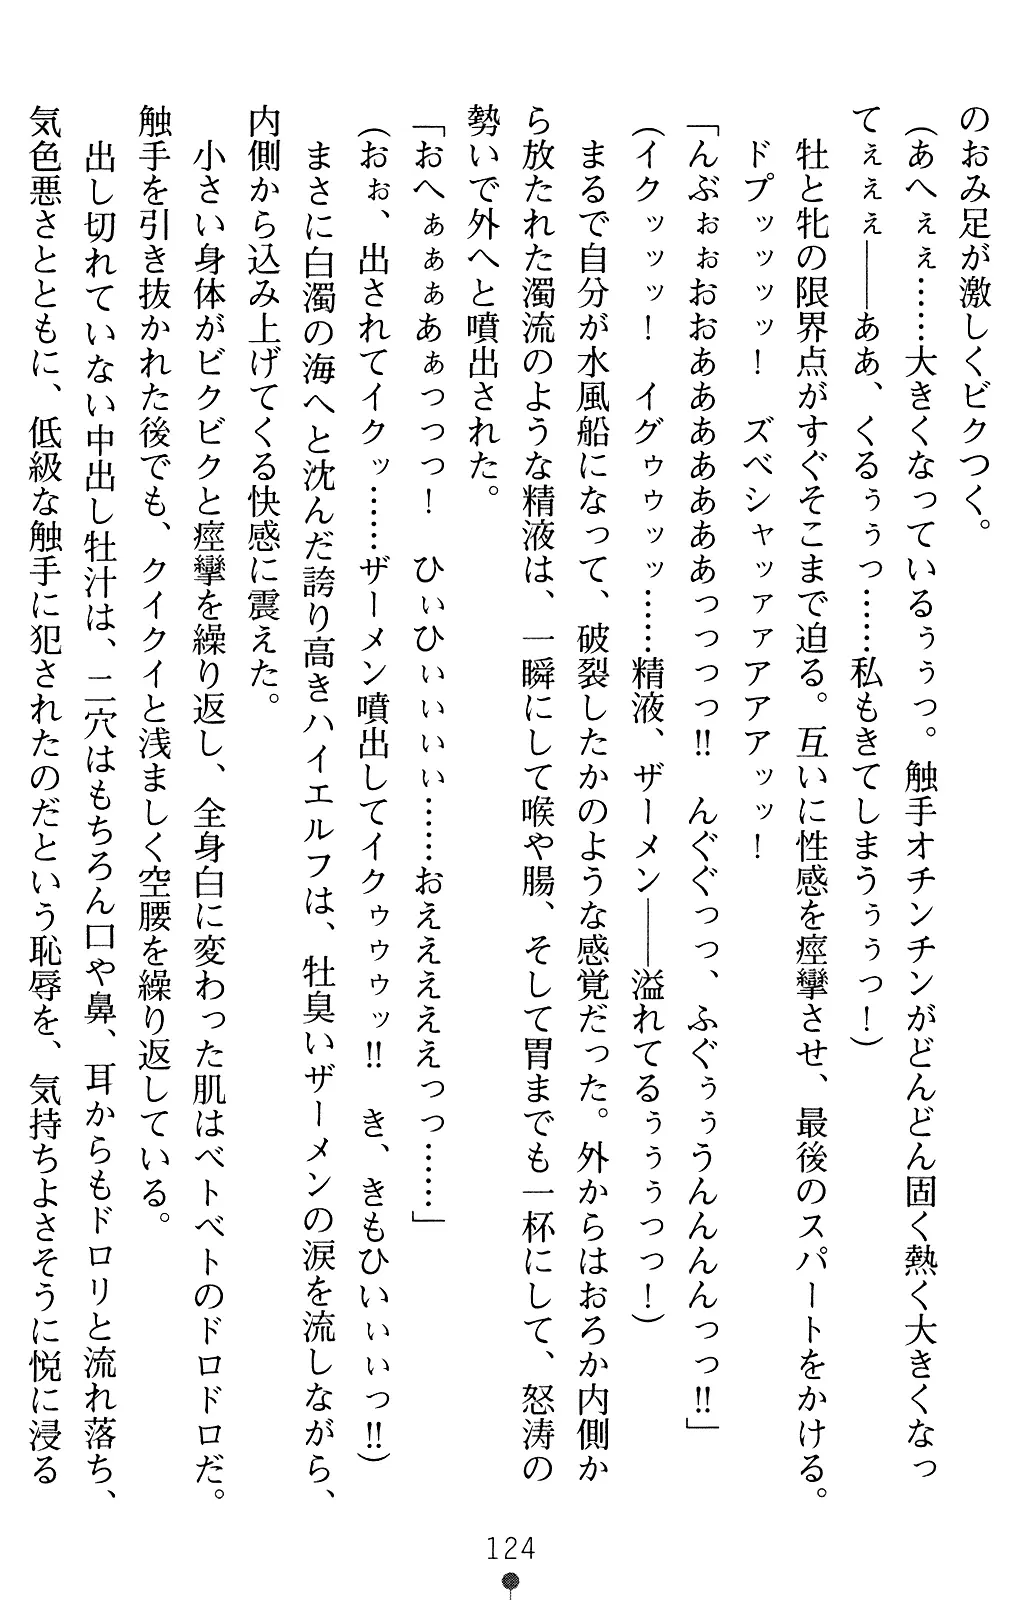 のおみ足が激しくビクつく。
(あへぇぇ……大きくなっているぅぅっ。触手オチンチンがどんどん固く熱く大きくなっ
てぇぇぇ――ああ、くるぅぅっ……私もきてしまうぅぅっ！)
牡と牝の限界点がすぐそこまで迫る。互いに性感を痙攣させ、最後のスパートをかける。
ドプッッッッ！　ズベシャッァァアアアッッ！
「んぶぉぉおおあああああああっっっっ!!　んぐぐっっ、ふぐぅぅうんんんんっっ!!」
(イクッッッ！　イグゥゥッッ……精液、ザーメン――溢れてるぅぅぅっっ！)
まるで自分が水風船になって、破裂したかのような感覚だった。外からはおろか内側か
ら放たれた濁流のような精液は、一瞬にして喉や腸、そして胃までも一杯にして、怒涛の
勢いで外へと噴出された。
「おへぁぁぁあぁっっっ！　ひぃひぃぃぃぃ……おええええぇっっ……」
(おぉ、出されてイクッ……ザーメン噴出してイクゥゥゥッ!!　き、きもひいぃぃっ!!)
まさに白濁の海へと沈んだ誇り高きハイエルフは、牡臭いザーメンの涙を流しながら、
内側から込み上げてくる快感に震えた。
小さい身体がビクビクと痙攣を繰り返し、全身白に変わった肌はベトベトのドロドロだ。
触手を引き抜かれた後でも、クイクイと浅ましく空腰を繰り返している。
出し切れていない中出し牡汁は、二穴はもちろん口や鼻、耳からもドロリと流れ落ち、
気色悪さとともに、低級な触手に犯されたのだという恥辱を、気持ちよさそうに悦に浸る
124